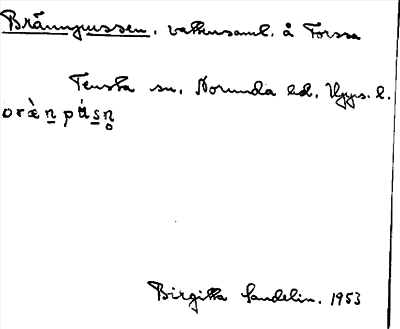 Brännpussen, vattensaml. å Forssa
Tensta sn. Norunda hd. Upps. l.
bræ̀n púsn̥
Birgitta Sandelin. 1953